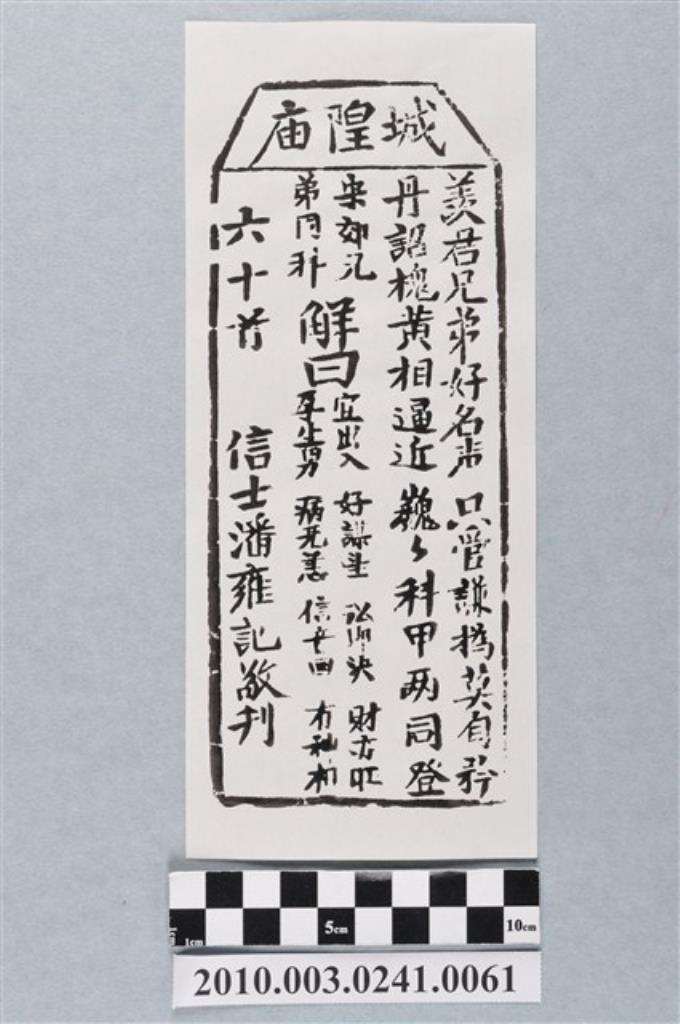 城隍庙
羡君兄弟好名声 只管謙撝莫自矜
丹詔槐黄相逼近 巍々科甲两同登
宋郊兄
弟同科
解曰
宜出入 好謀望 訟即決 財方旺
孕生男 病无恙 信音回 有神相
六十首 信士潘雍記敬刊
5cm
10cm
1cm
2010.003.0241.0061